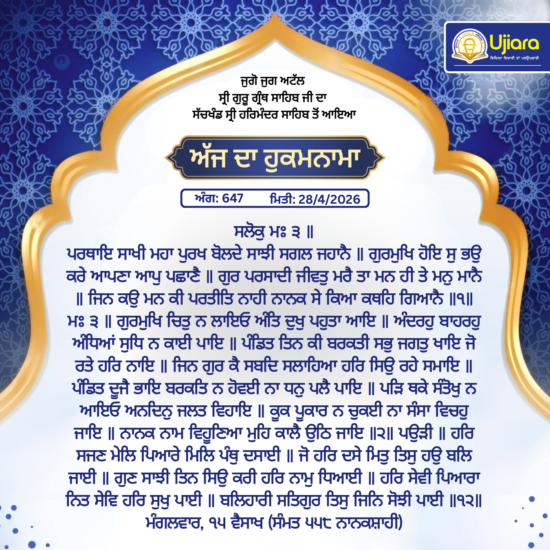 Ujiara
ਜੁਗੋ ਜੁਗ ਅਟੱਲ
ਸ੍ਰੀ ਗੁਰੂ ਗ੍ਰੰਥ ਸਾਹਿਬ ਜੀ ਦਾ
ਸੱਚਖੰਡ ਸ੍ਰੀ ਹਰਿਮੰਦਰ ਸਾਹਿਬ ਤੋਂ ਆਇਆ
ਅੱਜ ਦਾ ਹੁਕਮਨਾਮਾ
ਅੰਗ: 647 ਮਿਤੀ: 28/4/2026
ਸਲੋਕੁ ਮਃ ੩ ॥
ਪਰਥਾਇ ਸਾਖੀ ਮਹਾ ਪੁਰਖ ਬੋਲਦੇ ਸਾਝੀ ਸਗਲ ਜਹਾਨੈ ॥ ਗੁਰਮੁਖਿ ਹੋਇ ਸੁ ਭਉ
ਕਰੇ ਆਪਣਾ ਆਪੁ ਪਛਾਣੈ ॥ ਗੁਰ ਪਰਸਾਦੀ ਜੀਵਤੁ ਮਰੈ ਤਾ ਮਨ ਹੀ ਤੇ ਮਨੁ ਮਾਨੈ
॥ ਜਿਨ ਕਉ ਮਨ ਕੀ ਪਰਤੀਤਿ ਨਾਹੀ ਨਾਨਕ ਸੇ ਕਿਆ ਕਥਹਿ ਗਿਆਨੈ ॥੧॥
ਮਃ ੩ ॥ ਗੁਰਮੁਖਿ ਚਿਤੁ ਨ ਲਾਇਓ ਅੰਤਿ ਦੁਖੁ ਪਹੁਤਾ ਆਇ ॥ ਅੰਦਰਹੁ ਬਾਹਰਹੁ
ਅੰਧਿਆਂ ਸੁਧਿ ਨ ਕਾਈ ਪਾਇ ॥ ਪੰਡਿਤ ਤਿਨ ਕੀ ਬਰਕਤੀ ਸਭੁ ਜਗਤੁ ਖਾਇ ਜੋ
ਰਤੇ ਹਰਿ ਨਾਇ ॥ ਜਿਨ ਗੁਰ ਕੈ ਸਬਦਿ ਸਲਾਹਿਆ ਹਰਿ ਸਿਉ ਰਹੇ ਸਮਾਇ ॥
ਪੰਡਿਤ ਦੂਜੈ ਭਾਇ ਬਰਕਤਿ ਨ ਹੋਵਈ ਨਾ ਧਨੁ ਪਲੈ ਪਾਇ ॥ ਪੜਿ ਥਕੇ ਸੰਤੋਖੁ ਨ
ਆਇਓ ਅਨਦਿਨੁ ਜਲਤ ਵਿਹਾਇ ॥ ਕੂਕ ਪੂਕਾਰ ਨ ਚੁਕਈ ਨਾ ਸੰਸਾ ਵਿਚਹੁ
ਜਾਇ ॥ ਨਾਨਕ ਨਾਮ ਵਿਹੂਣਿਆ ਮੁਹਿ ਕਾਲੈ ਉਠਿ ਜਾਇ ॥੨॥ ਪਉੜੀ ॥ ਹਰਿ
ਸਜਣ ਮੇਲਿ ਪਿਆਰੇ ਮਿਲਿ ਪੰਥੁ ਦਸਾਈ ॥ ਜੋ ਹਰਿ ਦਸੇ ਮਿਤੁ ਤਿਸੁ ਹਉ ਬਲਿ
ਜਾਈ ॥ ਗੁਣ ਸਾਝੀ ਤਿਨ ਸਿਉ ਕਰੀ ਹਰਿ ਨਾਮੁ ਧਿਆਈ ॥ ਹਰਿ ਸੇਵੀ ਪਿਆਰਾ
ਨਿਤ ਸੇਵਿ ਹਰਿ ਸੁਖੁ ਪਾਈ ॥ ਬਲਿਹਾਰੀ ਸਤਿਗੁਰ ਤਿਸੁ ਜਿਨਿ ਸੋਝੀ ਪਾਈ ॥੧੨॥
ਮੰਗਲਵਾਰ, ੧੫ ਵੈਸਾਖ (ਸੰਮਤ ੫੫੮ ਨਾਨਕਸ਼ਾਹੀ)